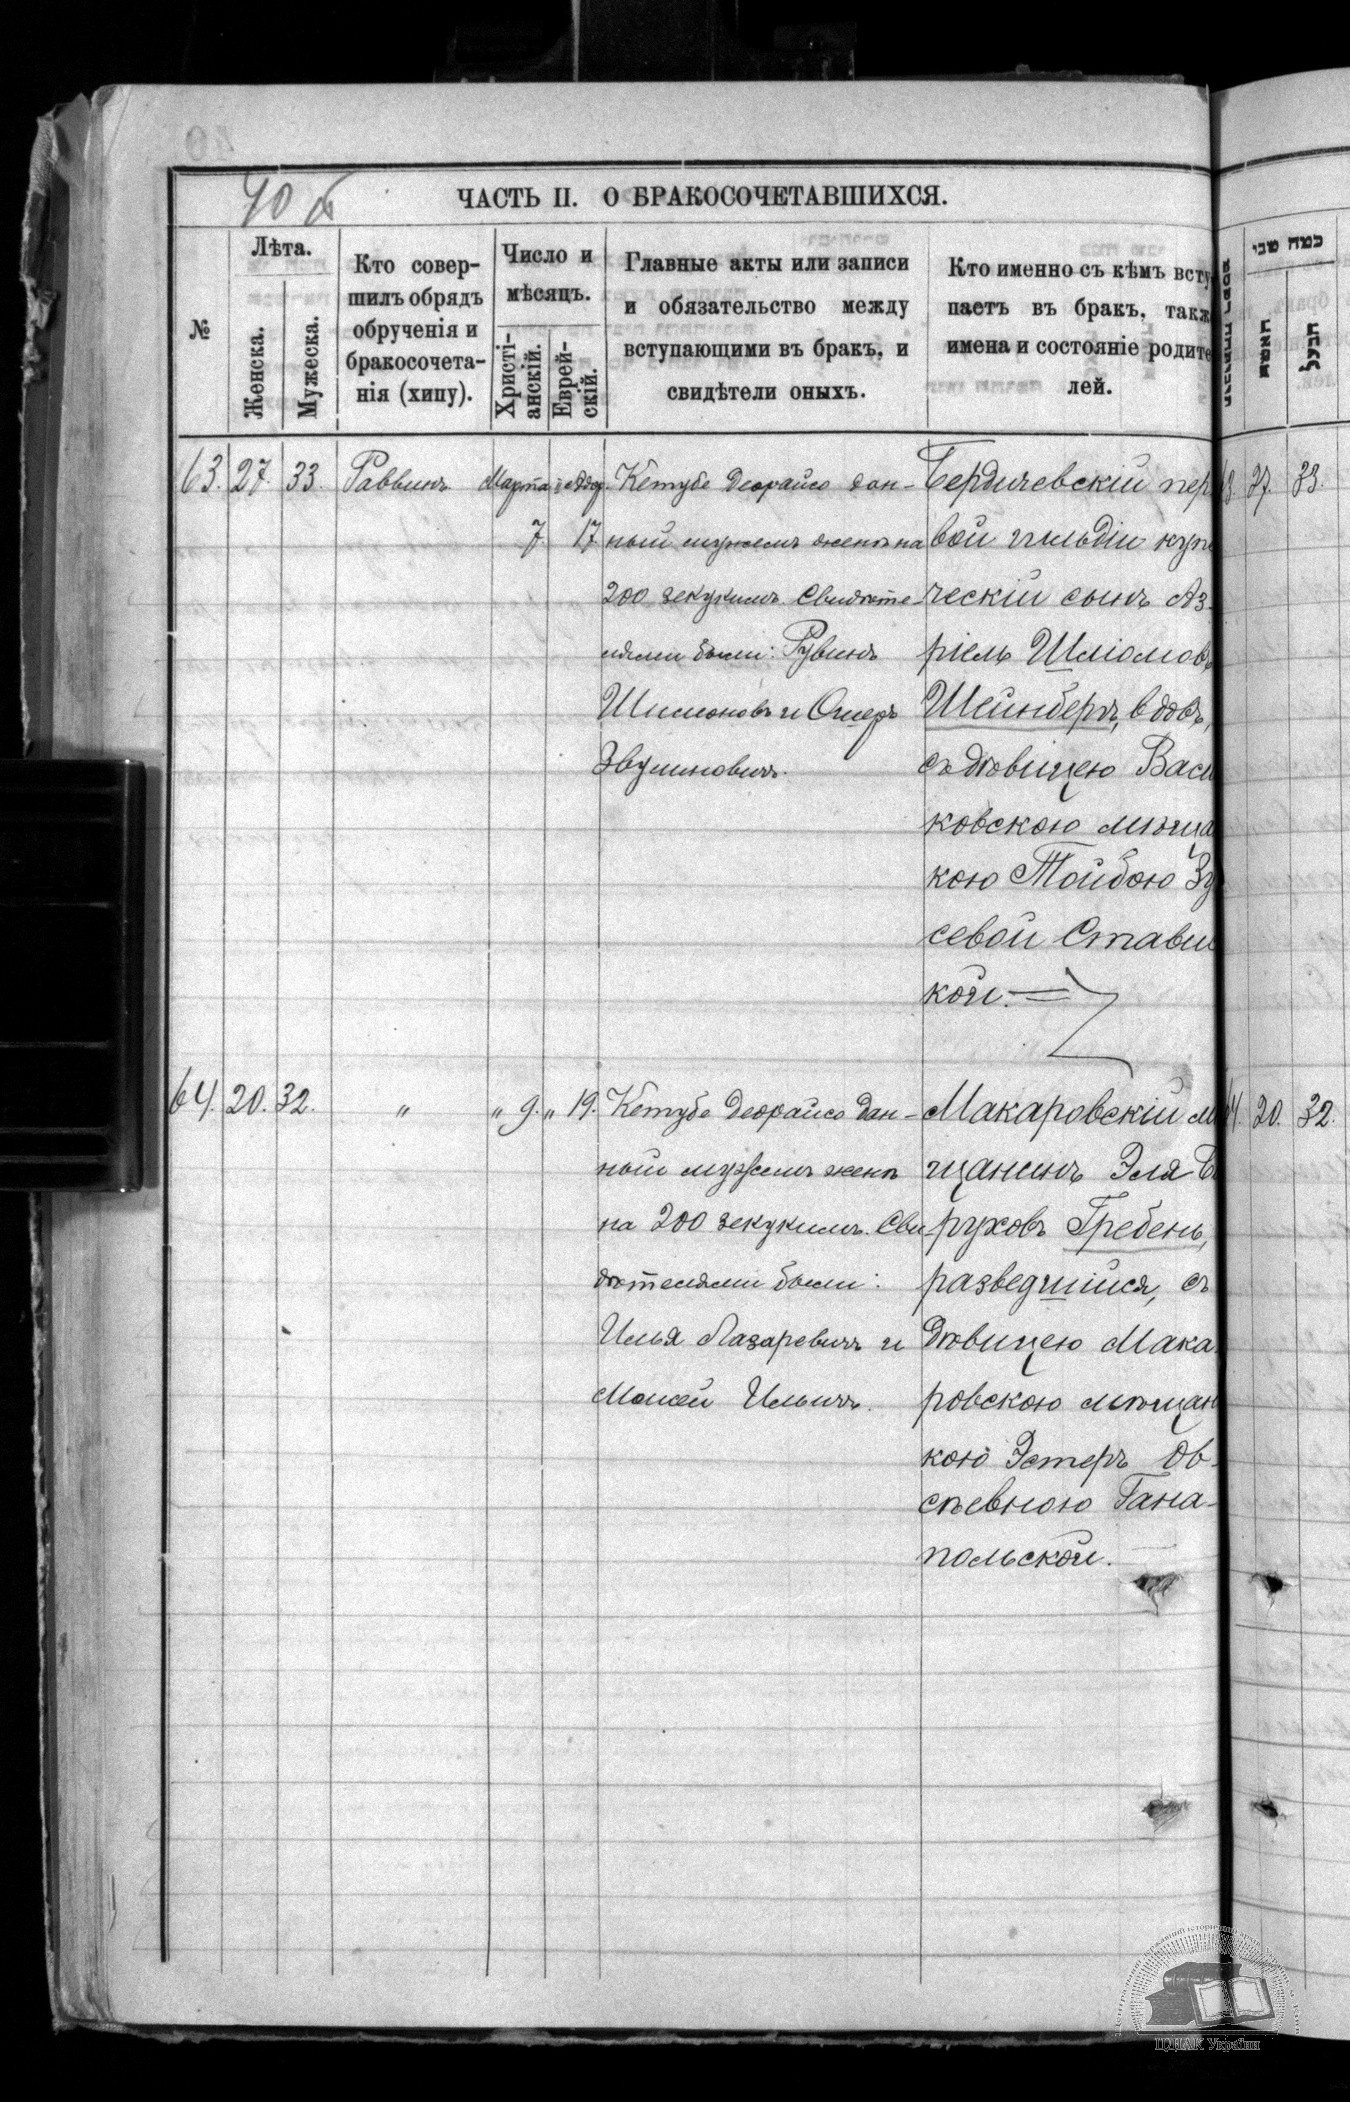 40 б
ЧАСТЬ II. О БРАКОСОЧЕТАВШИХСЯ.
№
Лѣта.
Женска.
Мужеска.
Кто совер-
шилъ обрядъ
обрученія и
бракосочета-
нія (хипу).
Число и
мѣсяцъ.
Христі-
анскій.
Еврей-
скій.
Главные акты или записи
и обязательство между
вступающими въ бракъ, и
свидѣтели оныхъ.
Кто именно съ кѣмъ всту
паетъ въ бракъ, такж
имена и состояніе родите
лей.
63. 27. 33. Раввинъ Марта 7. 17
Кетубе Деорайсо дан-
ный мужемъ женѣ на
200 зекукимъ. Свидѣте-
лями были: Рувинъ
Шимоновъ и Ошеръ
Звулиновичъ.
Бердичевскій пер
вой гильдіи купе
ческій сынъ Аз-
ріель Шліомовъ
Шейнбергъ, вдов.,
съ дѣвицею Васи
ковскою мѣща
кою Тойбою Зу
севой Ставис
кой.
64. 20. 32. " " 9. " 19.
Кетубе Деорайсо дан-
ный мужемъ женѣ
на 200 зекукимъ. Сви-
дѣтелями были:
Илья Лазаревичъ и
Моисей Ильичъ.
Макаровскій мѣ
щанинъ Эля Б
руховъ Гребень,
разведшійся, съ
дѣвицею Мака
ровскою мѣщан
кою Эстеръ Ов-
сѣевною Гана-
польской.
כמה שני
האשה
הבעל
63. 27. 33.
64. 20. 32.
ЦДІАК України